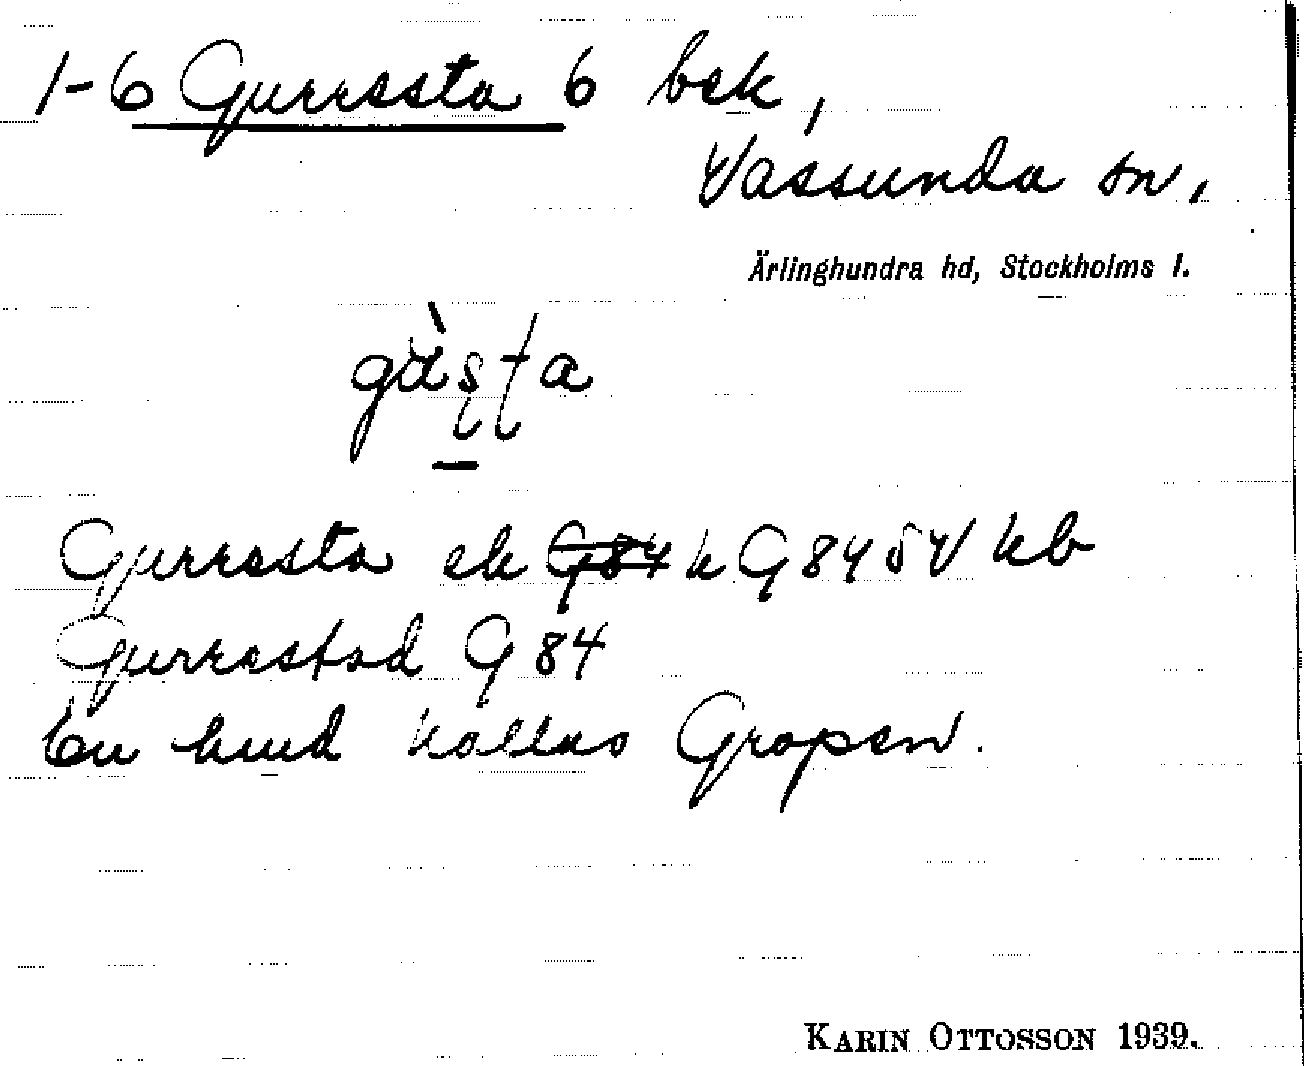 1-6 Gurresta 6 bek,
Vassunda sn,
Ärlinghundra hd, Stockholms l.
Gurresta ek G84 k G84 SV kb
Gurrestad G 84
En lund kallas Gropen.
KARIN OTTOSSON 1939.